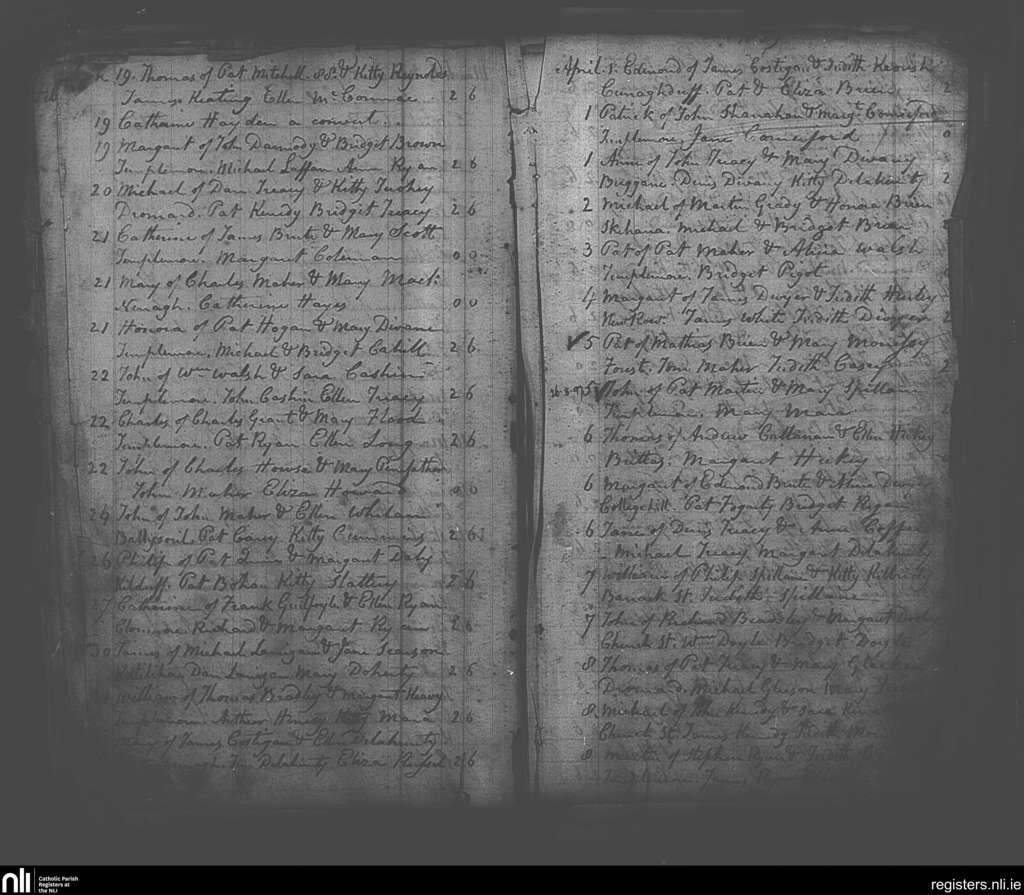 h 19. Thomas of Pat Mitchell & Kitty Reynolds
James Keating Ellen McCormac 2 6
19 Catharine Hayden a convert
19 Margaret of John Darmody & Bridget Brown
Templemore. Michael Laffan Ann Ryan 2 6
20 Michael of Dan Treacy & Kitty Tuohey
Dromard. Pat Kenedy Bridget Treacy 2 6
21 Catherine of James Brute & Mary Scott
Templemore. Margaret Coleman 0 0
21 Mary of Charles Maher & Mary
Nenagh. Catherine Hayes 0 0
21 Honora of Pat Hogan & Mary Divane
Templemore. Michael & Bridget Cahill 2 6
22 John of Wm Walsh & Sara Cashin
Templemore. John Cashin Ellen Treacy 2 6
22 Charles of Charles Grant & Mary Flood
Templemore. Pat Ryan Ellen Long 2 6
22 John of Charles Howse & Mary
John Maher Eliza Howard 0 0
24 John of John Maher & Ellen Whelan
Pat Carey Kitty Cummins 2 6
26 Philip of Pat Quinn & Margaret Daly
Kilduff. Pat Bohan Kitty Slattery 2 6
27 Catherine of Frank Guilfoyle & Ellen Ryan
Clonmore. Richard & Margaret Ryan 2 6
30 James of Michael Lanigan & Jane
Dan Lanigan Mary Doherty 2 6
William of Thomas Bradley & Margaret Heavy
Templemore. Arthur Kitty Mara 2 6
Mary of James Costigan & Ellen Delahunty
Tim Delahunty Eliza 2 6
April. 1. Edmond of James Costigan & Judith
Cunaghduff. Pat & Eliza Brien 2
1 Patrick of John Shanahan & Margt Comerford
Templemore Jane Comerford 0
1 Ann of John Treacy & Mary Divany
Buggane. Denis Divany Kitty Delahunty 2
2 Michael of Martin Grady & Honora Brien
Skehana. Michael & Bridget Brien 2
3 Pat of Pat Maher & Alicia Walsh
Templemore. Bridget Pigot 2
4 Margaret of James Dwyer & Judith Hurley
New Row. James White Judith Dwyer 2
5 Pat of Mathias Brien & Mary
Forest. Tom Maher Judith Casey 2
5 John of Pat Martin & Mary Spillane
Templemore. Mary Mara 2
6 Thomas of Andrew Callanan & Ellen Hickey
Buttas. Margaret Hickey
6 Margaret of Edmond Brute & Dwyer
Collegehill. Pat Fogarty Bridget Ryan
6 Jane of Denis Treacy & Anne
Michael Treacy Margaret Delahunty
7 William of Philip Spillane & Kitty Kilbridy
Barrack St. Judith Spillane
7 John of Richard Beardsley & Margaret
Church St. Wm Doyle Bridget Doyle
8 Thomas of Pat Treacy & Mary
Dromard. Michael Gleeson Mary
8 Michael of John Kenedy & Sara
Church St. James Kenedy Judith
8 Martin of Stephen Ryan & Judith
Templemore James Ryan
nli
Catholic Parish
Registers at
the NLI
registers.nli.ie